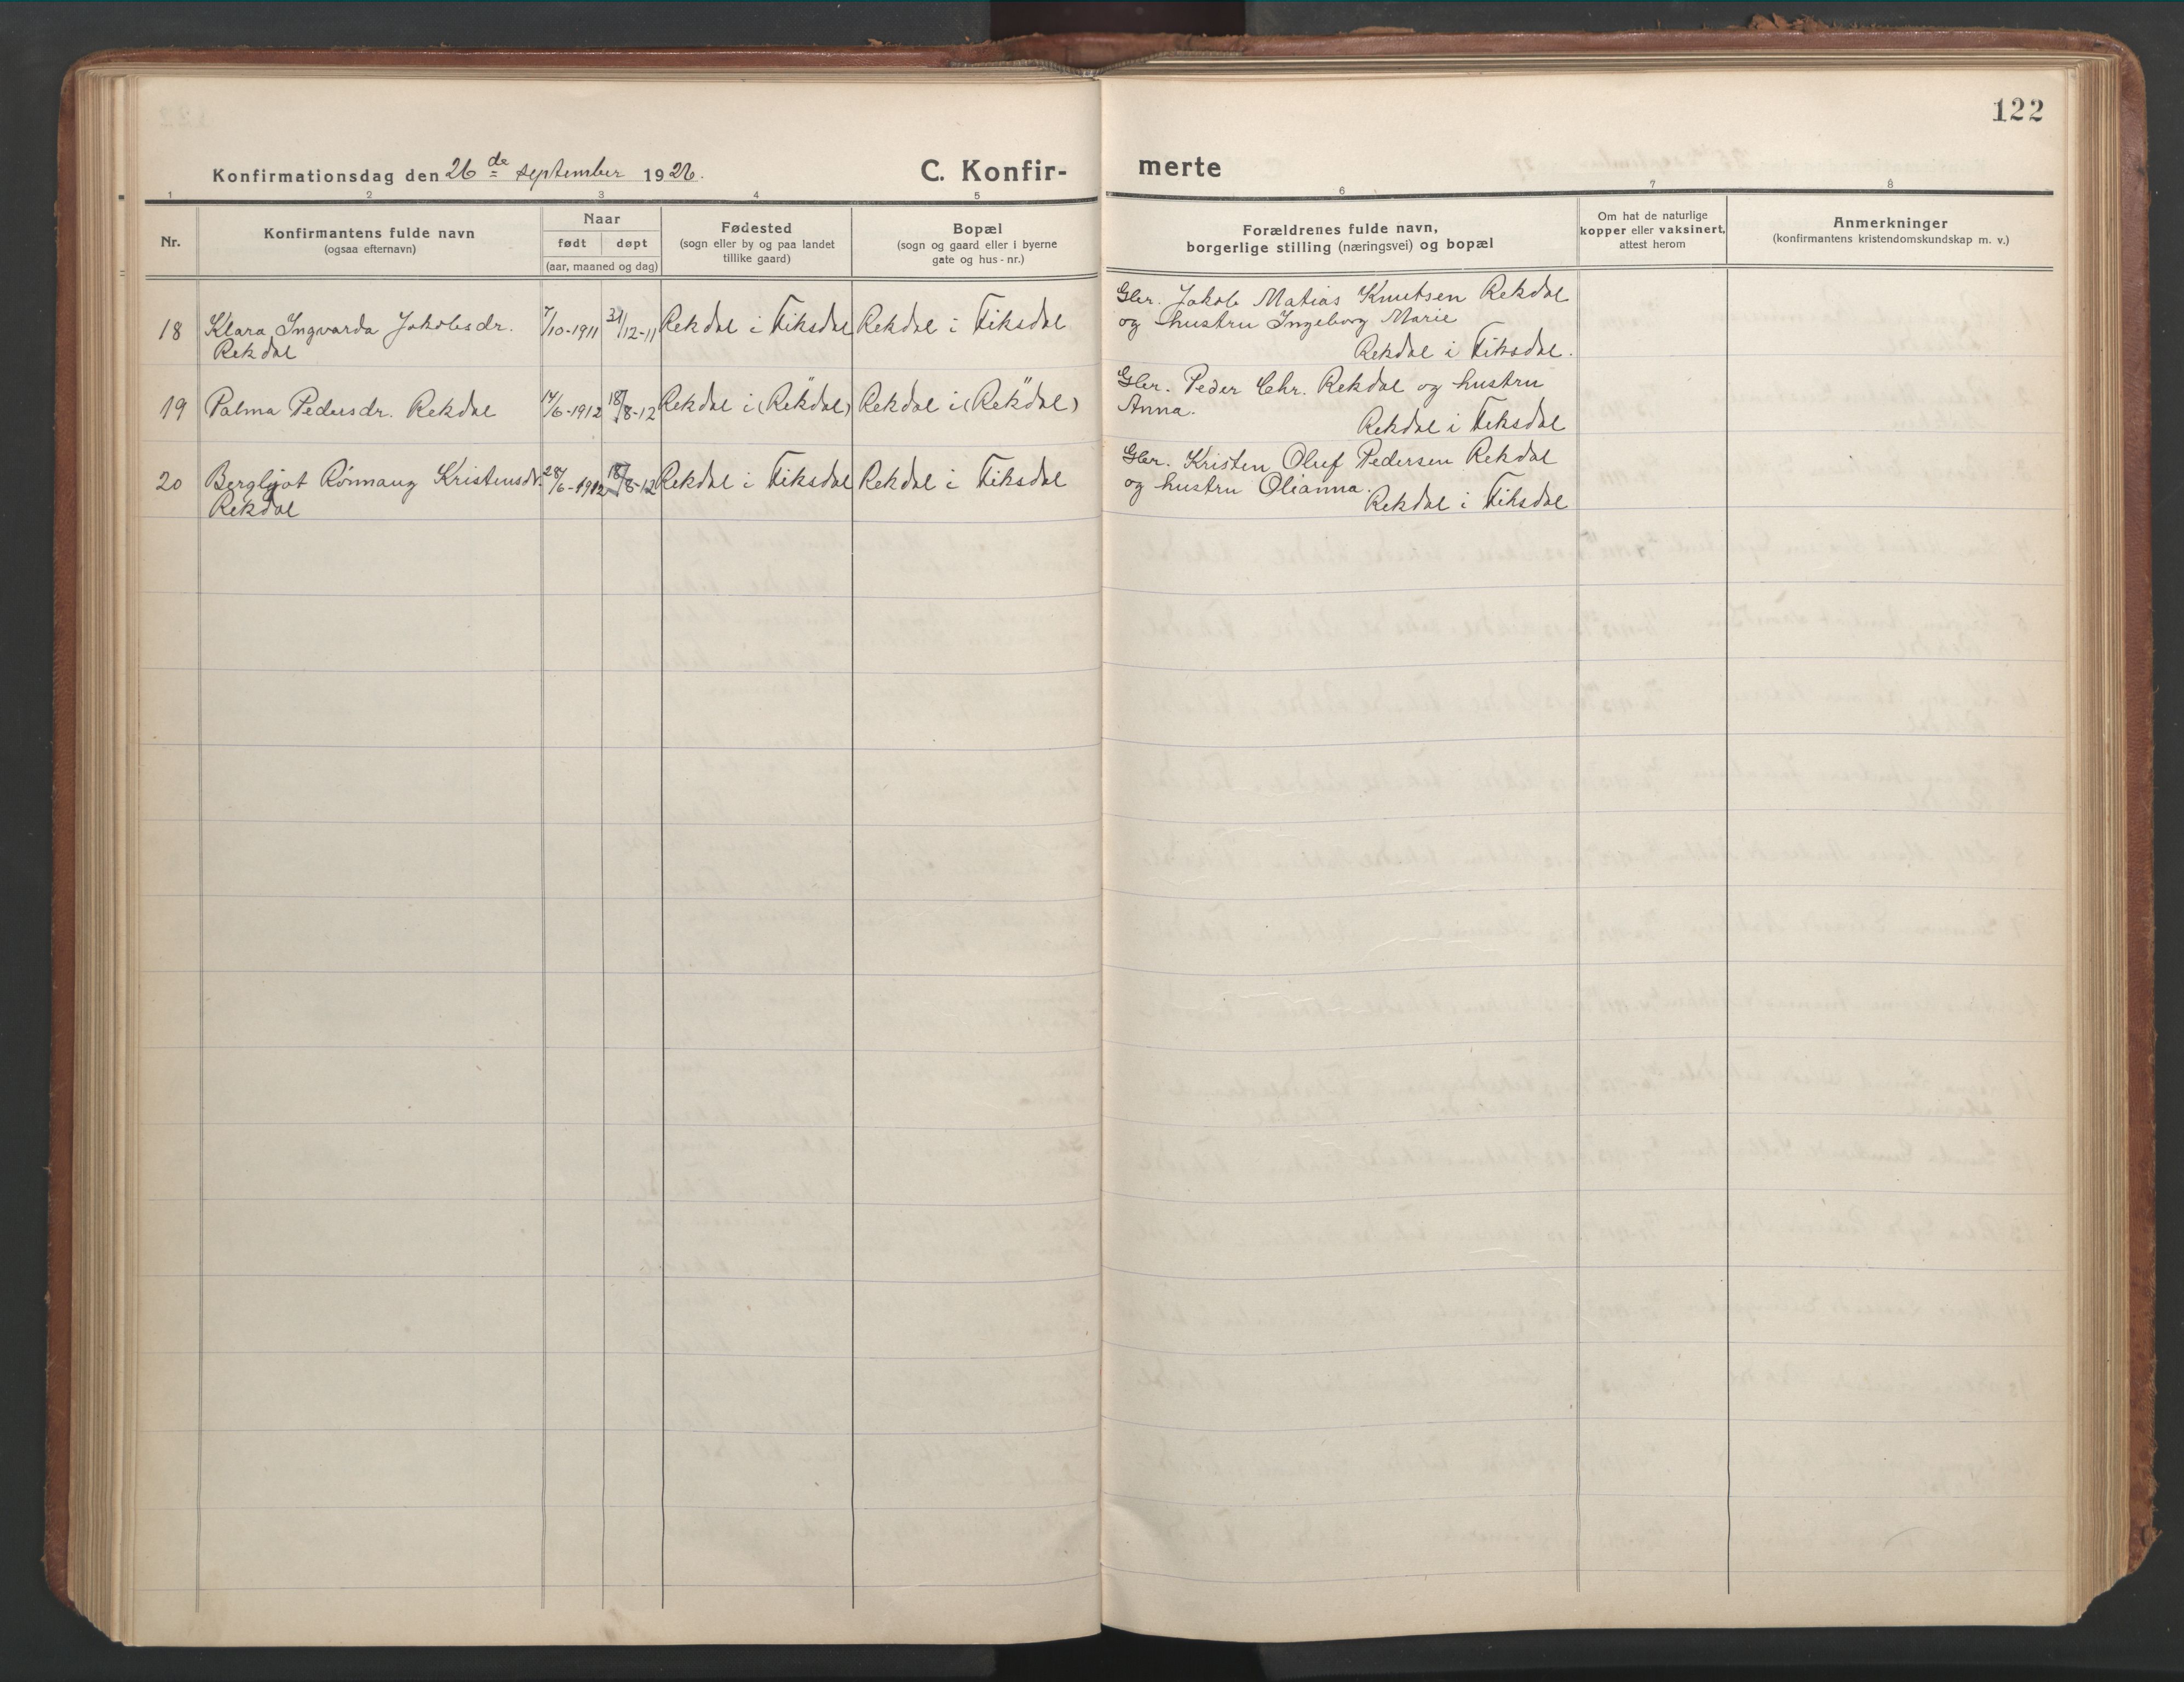 122
Konfirmationsdag den 26de september 1926.
C. Konfir-
merte
1 2 3 4 5 6 7 8
Nr.
Konfirmantens fulde navn
(ogsaa efternavn)
Naar
født døpt
(aar, maaned og dag)
Fødested
(sogn eller by og paa landet
tillike gaard)
Bopæl
(sogn og gaard eller i byerne
gate og hus-nr.)
Forældrenes fulde navn,
borgerlige stilling (næringsvei) og bopæl
Om hat de naturlige
kopper eller vaksinert,
attest herom
Anmerkninger
(konfirmantens kristendomskundskap m. v.)
18 Klara Ingvarda Jakobsdr. 7/10-1911 31/12-11 Rekdal i Fiksdal Rekdal i Fiksdal
Rekdal
Gbr. Jakob Matias Knutsen Rekdal
og hustru Ingeborg Marie
Rekdal i Fiksdal.
19 Palma Pedersdr. Rekdal 14/6-1912 18/8-12 Rekdal i (Rekdal) Rekdal i (Rekdal)
Gbr. Peder Chr. Rekdal og hustru
Anna.
Rekdal i Fiksdal
20 Bergljot Rønnaug Kristensdr. 28/6-1912 18/8-12 Rekdal i Fiksdal Rekdal i Fiksdal
Rekdal
Gbr. Kristen Oluf Pedersen Rekdal
og hustru Olianna.
Rekdal i Fiksdal